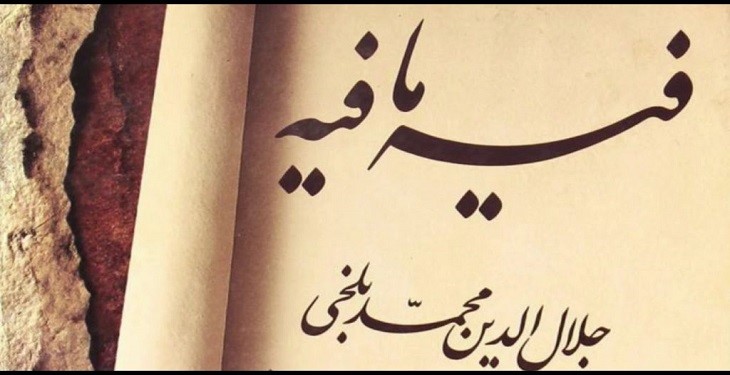 فیه ما فیه
جلال الدین محمّد بلخی